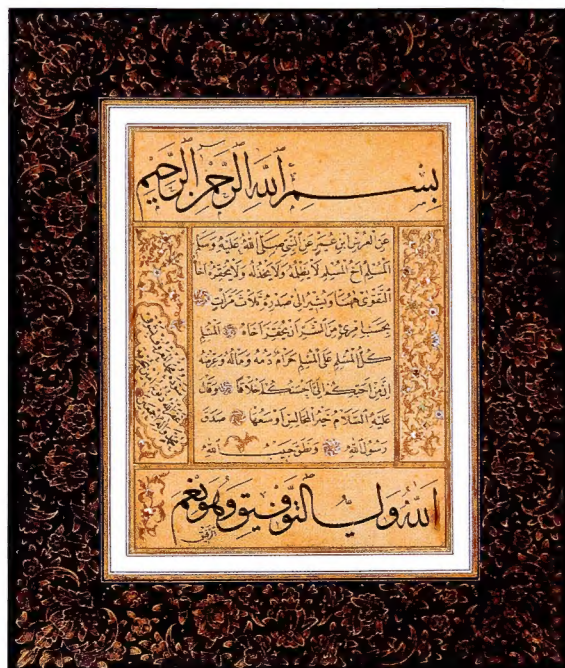 بِسْمِ اللهِ الرَّحْمٰنِ الرَّحِيمِ
عن ابن عمر عن النبي صلى الله عليه وسلم
المسلم اخ المسلم لا يظلمه ولا يخذله ولا يحقره
التقوى ههنا ويشير الى صدره ثلاث مرات
بحسب امرئ من الشر ان يحقر اخاه المسلم
كل المسلم على المسلم حرام دمه وماله وعرضه
ان من احبكم الي احسنكم اخلاقا وقال
عليه السلام خير المجالس اوسعها صدق
رسول الله ونطق حبيب الله
الله ولي التوفيق وهو نعم
الرفيق